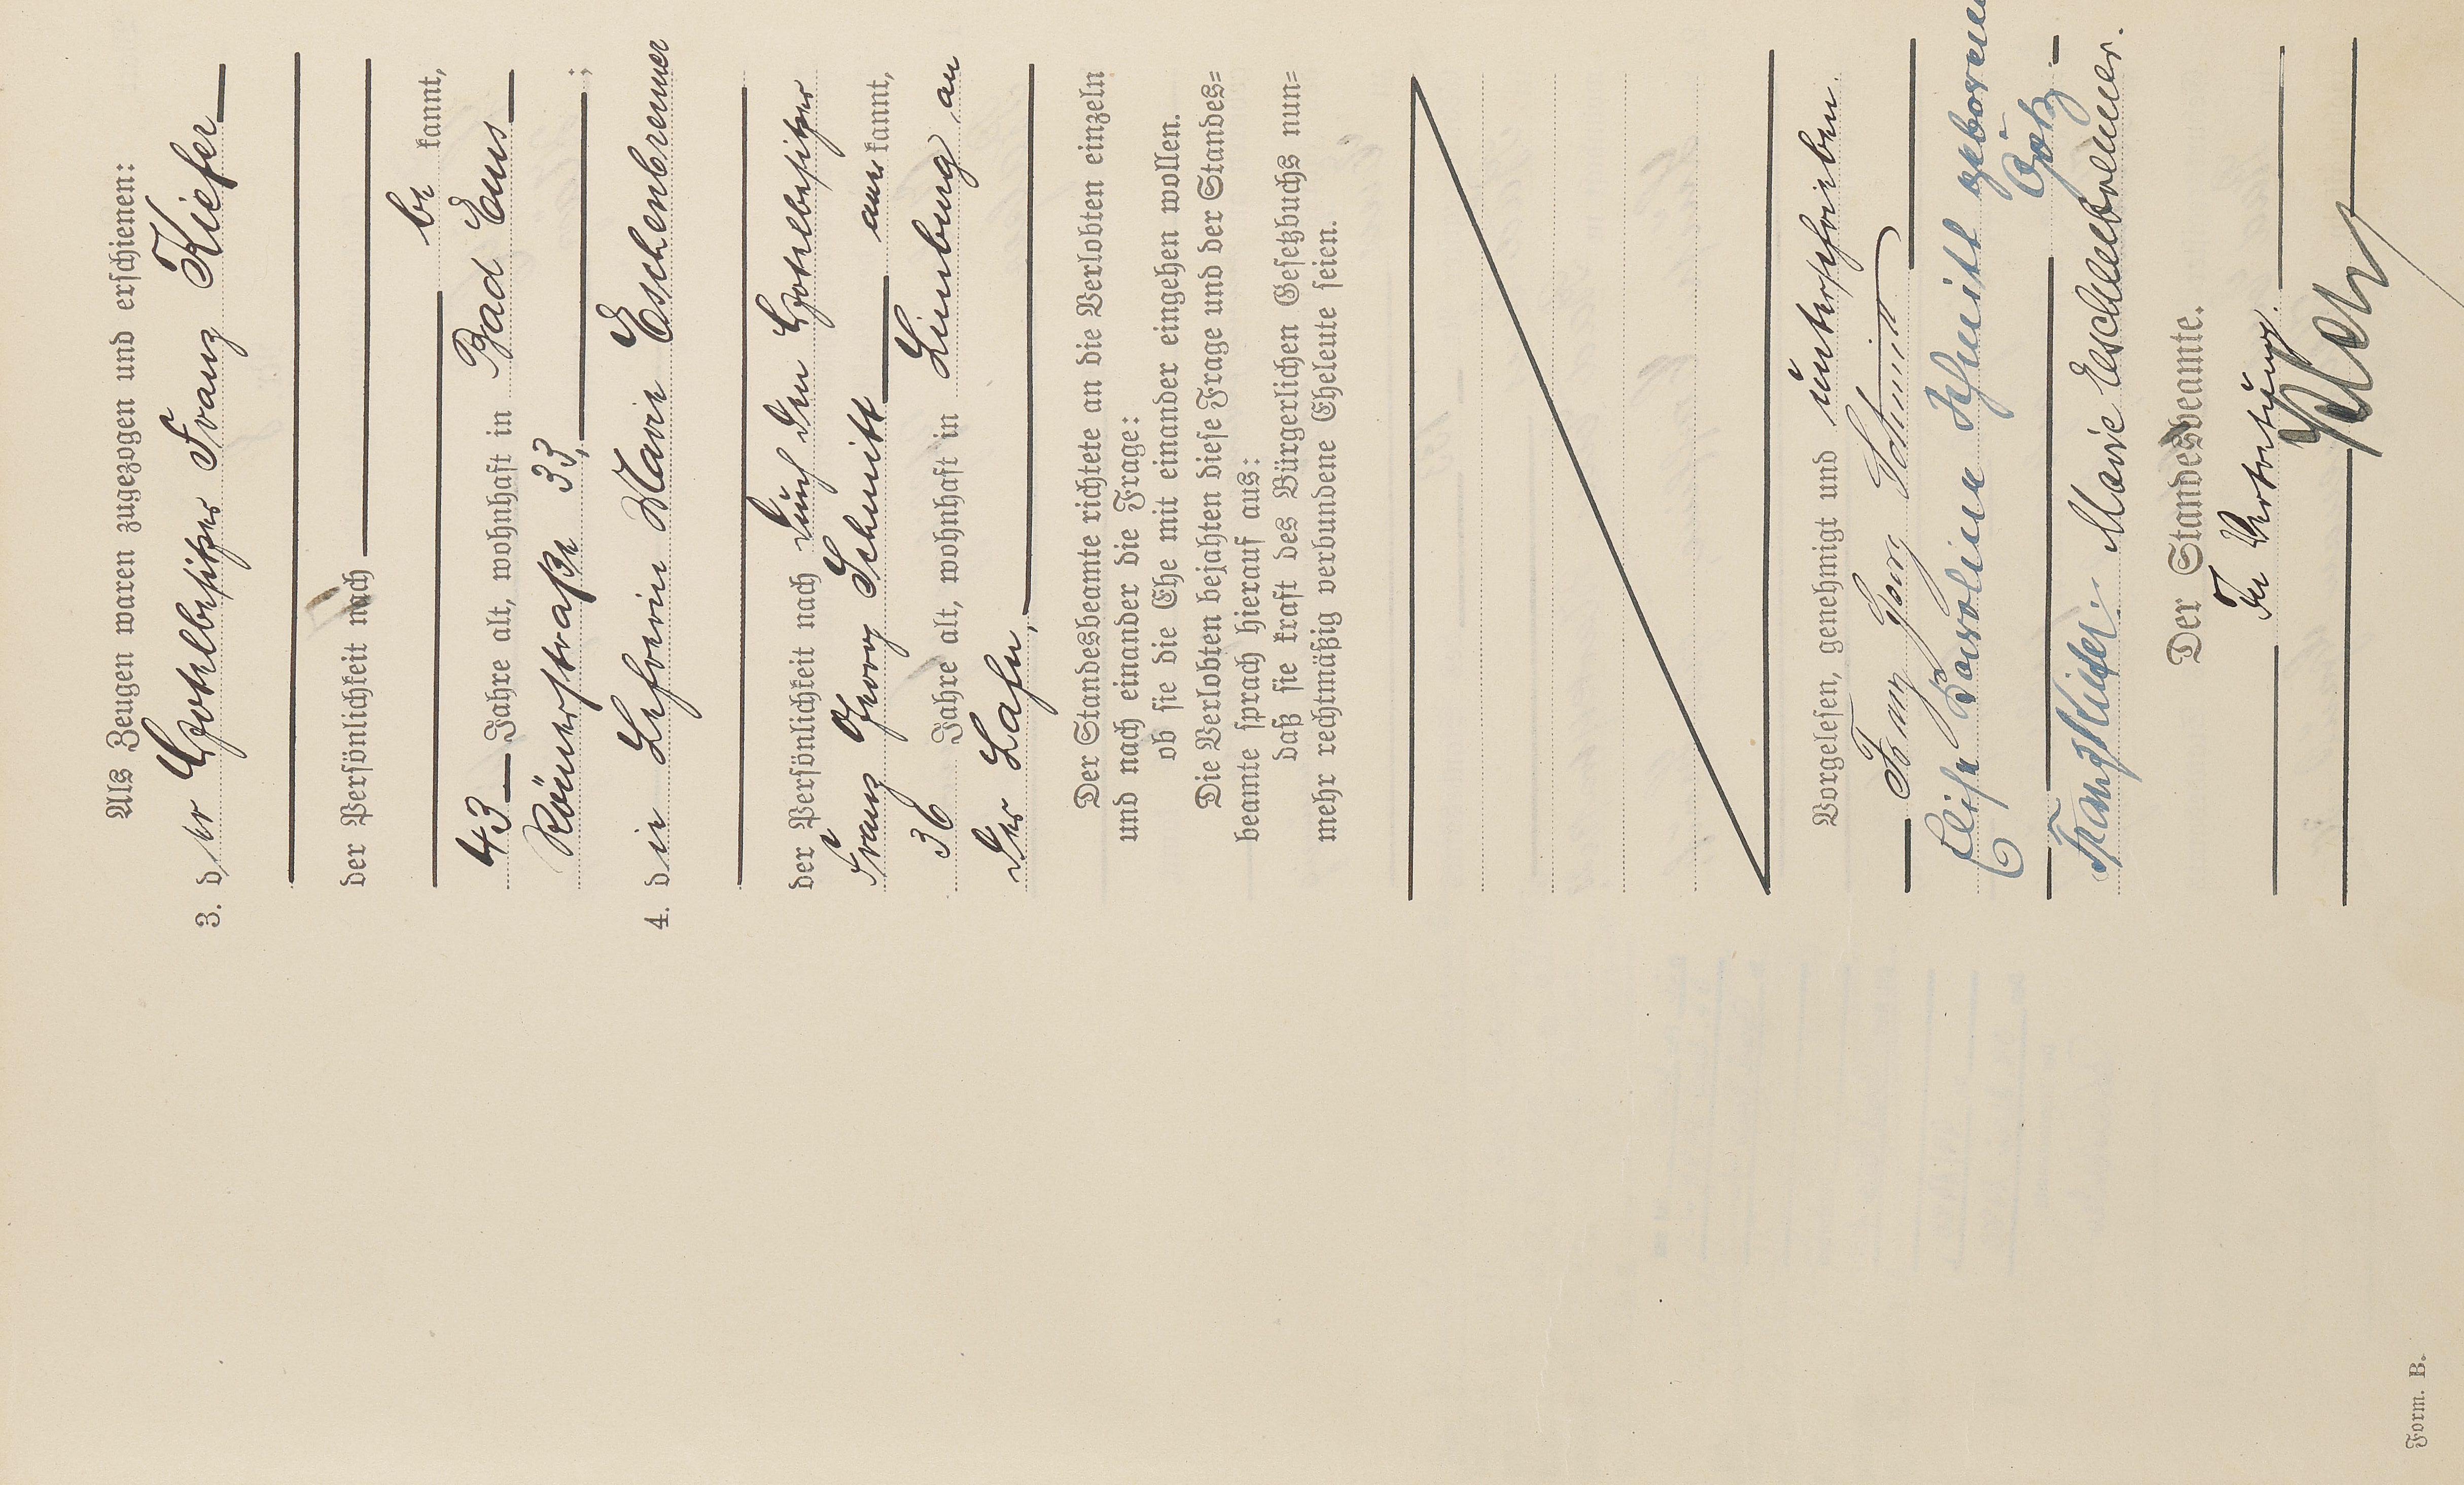 Als Zeugen waren zugezogen und erschienen:
3. der Hotelbesitzer Franz Kiefer
der Persönlichkeit nach
be kannt,
43 Jahre alt, wohnhaft in Bad Ems
Römerstraße 33,
;
4. die Lehrerin Marie Eschenbrenner
der Persönlichkeit nach durch den Hotelbesitzer
Franz Georg Schmitt aner kannt,
36 Jahre alt, wohnhaft in Limburg an
der Lahn,
Der Standesbeamte richtete an die Verlobten einzeln
und nach einander die Frage:
ob sie die Ehe mit einander eingehen wollen.
Die Verlobten bejahten diese Frage und der Standes=
beamte sprach hierauf aus:
daß sie kraft des Bürgerlichen Gesetzbuchs nun=
mehr rechtmäßig verbundene Eheleute seien.
Vorgelesen, genehmigt und unterschrieben
Franz Georg Schmitt
Elise Karoline Schmitt geborene
Götz
Franz Kiefer. Marie Eschenbrenner.
Der Standesbeamte.
In Vertretung.
Form. B.